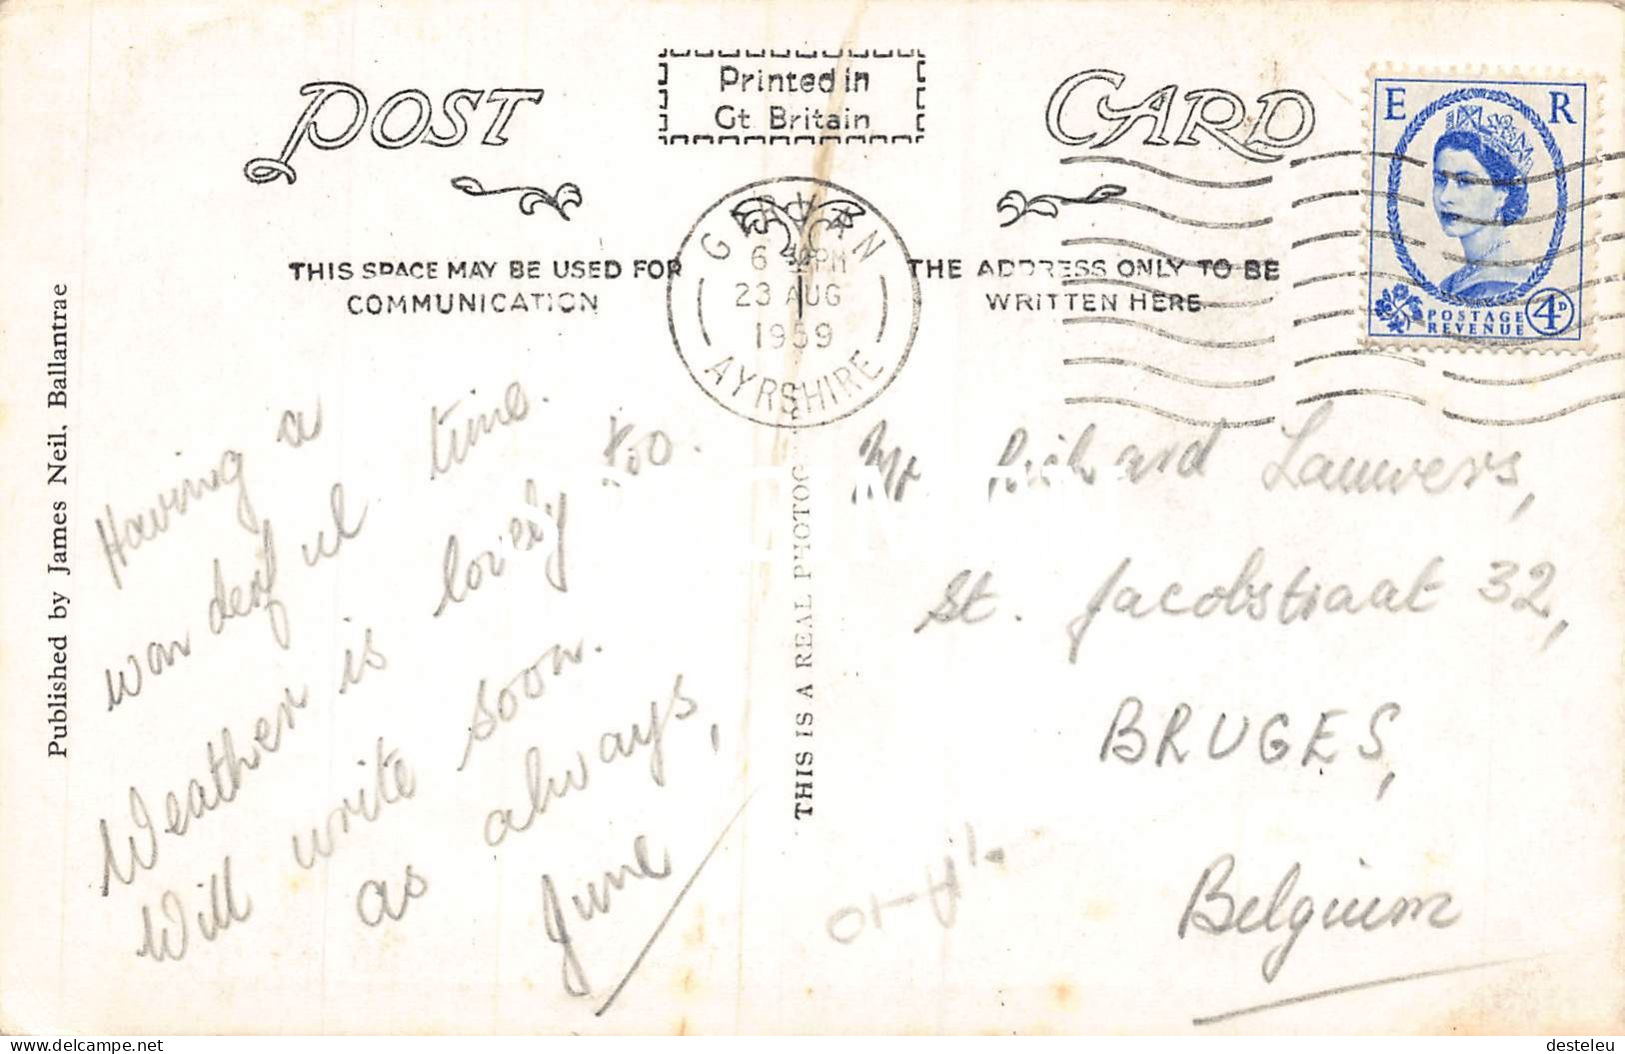 POST CARD
Printed in
Gt Britain
THIS SPACE MAY BE USED FOR
COMMUNICATION
THE ADDRESS ONLY TO BE
WRITTEN HERE
GIRVAN
6 PM
23 AUG
1959
AYRSHIRE
E R
POSTAGE
REVENUE
4D
Published by James Neil, Ballantrae
THIS IS A REAL PHOTOG
Having a
wonderful time.
Weather is lovely too.
Will write soon.
as always,
June
Mr Richard Lauwers,
St. Jacobstraat 32,
BRUGES,
Belgium
© CARTE POSTALE - delcampe.net
desteleu